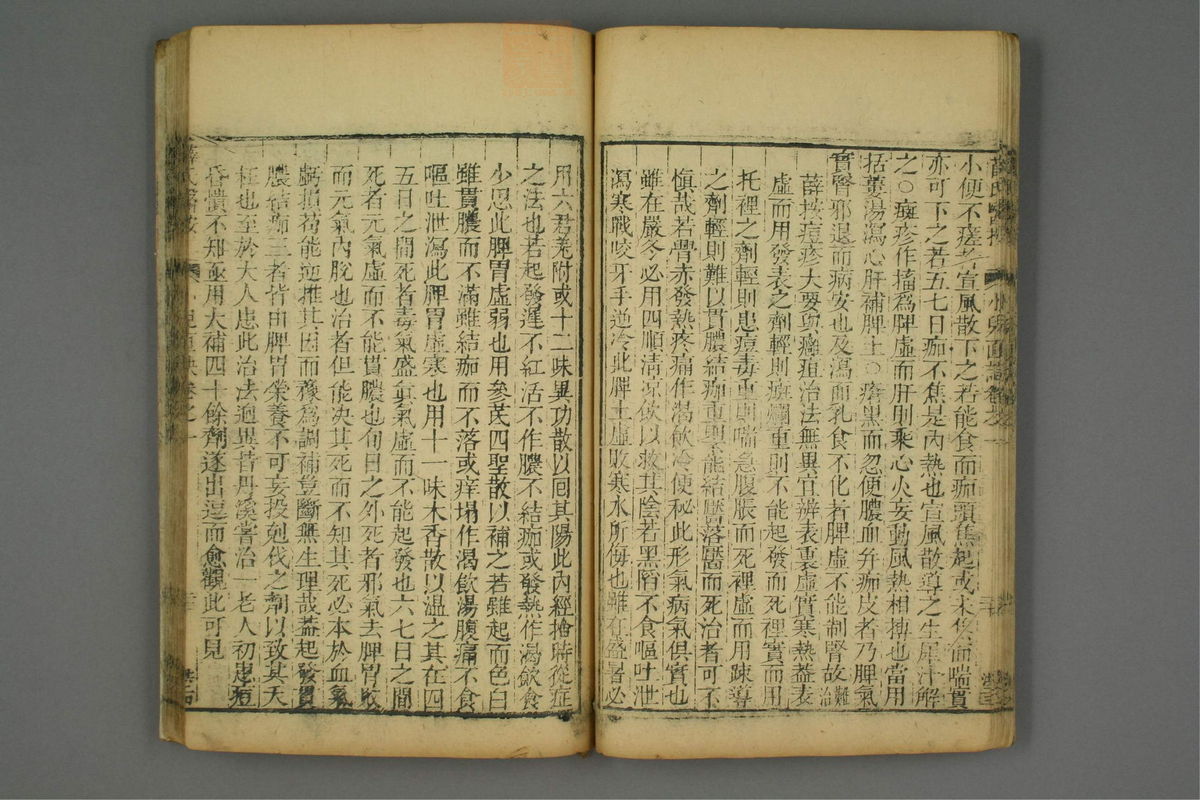 小便不瘥者宣風散下之若能食而痂頭焦起或未焦而喘實
亦可下之若五七日痂不焦是內熱也宣風散導之生犀汁解
之○斑疹作搐為脾虛而肝則乘心火妄動風熱相摶也當用
括蔞湯瀉心肝補脾土○瘡黑而忽便膿血并痂皮者乃脾氣
實腎邪退而病安也及瀉而乳食不化者脾虛不能制腎故難治
薛按痘疹大要與癰疽治法無異宜辨表裏虛實寒熱葢表
虛而用發表之劑輕則斑爛重則不能起發而死裡實而用
托裡之劑輕則患痘毒重則喘急腹脹而死裡虛而用踈導
之劑輕則難以貫膿結痂重則不能結靨落靨而死治者可不
愼哉若骨赤發熱疼痛作渴飲冷便秘此形氣病氣俱實也
雖在嚴冬必用四順清凉飲以救其陰若黑陷不食嘔吐泄
瀉寒戰咬牙手逆冷此脾土虛敗寒水所侮也雖在盛暑必
用六君羌附或十二味異功散以囘其陽此內經捨時從症
之法也若起發遲不紅活不作膿不結痂或發熱作渴飲食
少思此脾胃虛弱也用參芪四聖散以補之若雖起而色白
雖貫膿而不滿雖結痂而不落或痒塌作渴飲湯腹痛不食
嘔吐泄瀉此脾胃虛寒也用十一味木香散以温之其在四
五日之間死者毒氣盛真氣虛而不能起發也六七日之間
死者元氣虛而不能貫膿也旬日之外死者邪氣去脾胃敗
而元氣內脫也治者但能决其死而不知其死必本於血氣
虧損苟能逆推其因而豫為調補豈斷無生理哉葢起發貫
膿結痂三者皆由脾胃榮養不可妄投剋伐之劑以致其夭
枉也至於大人患此治法逈異昔丹溪甞治一老人初患痘
昏憒不知亟用大補四十餘劑遂出逗而愈觀此可見